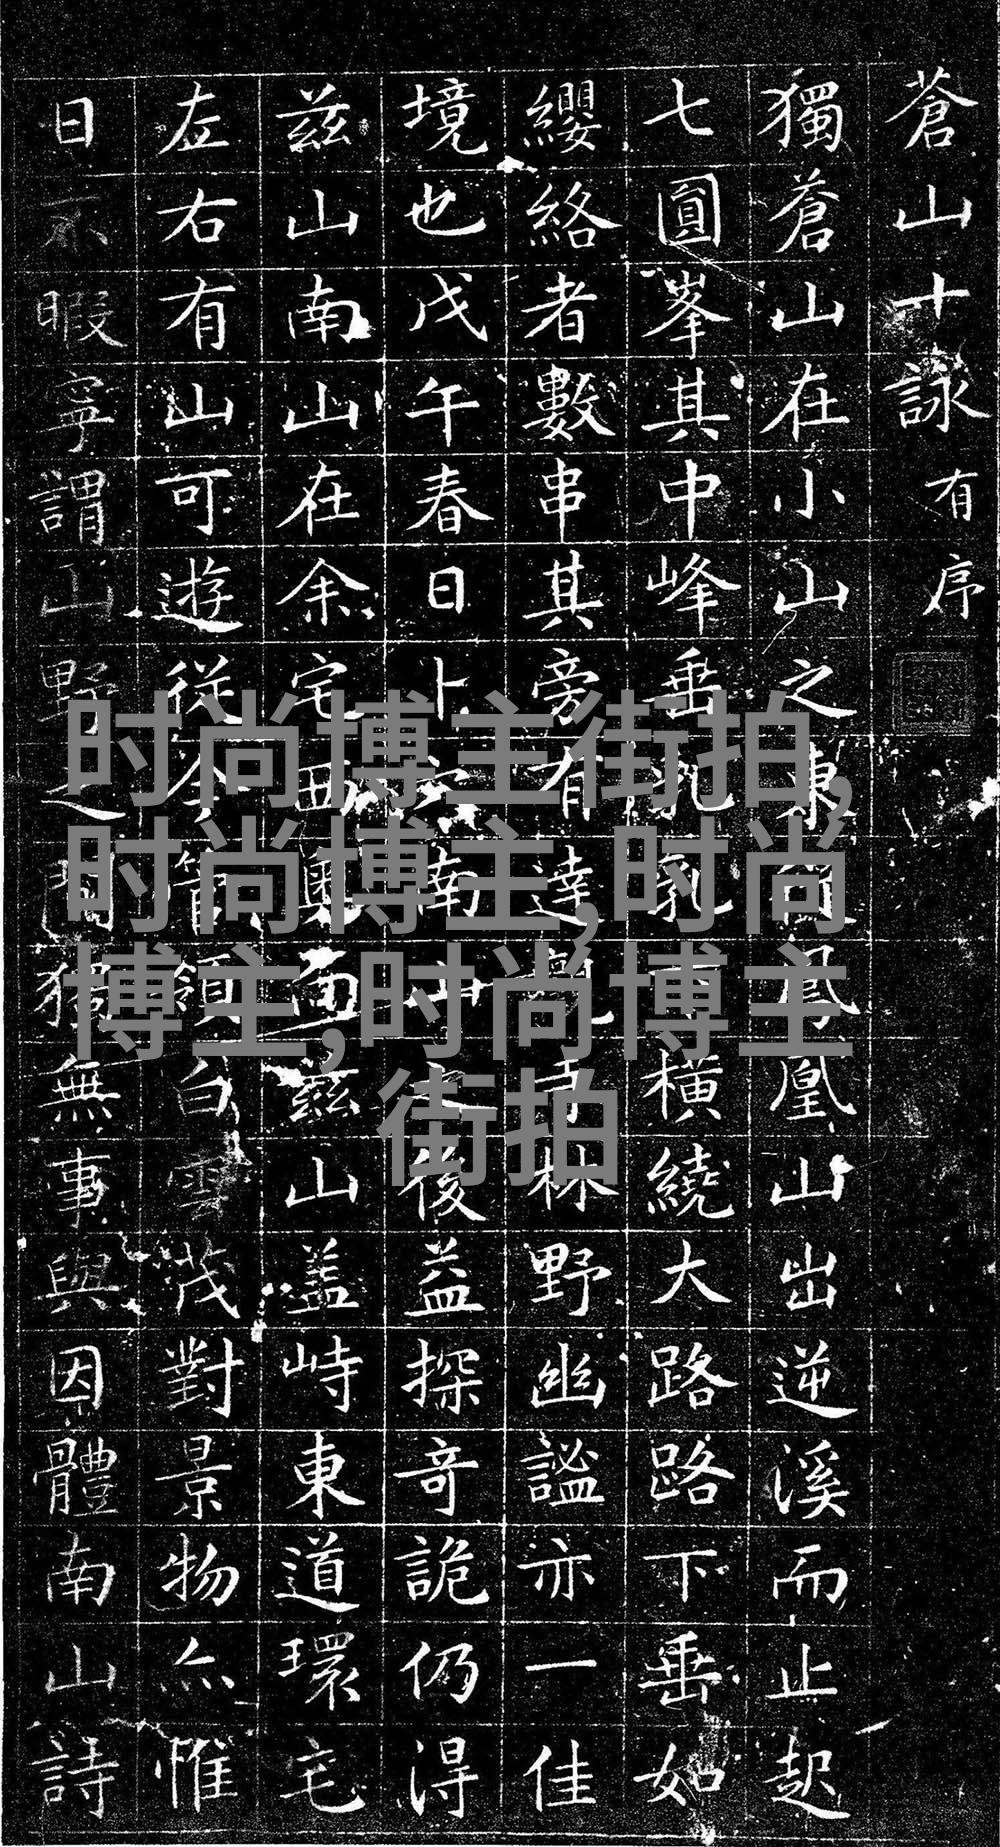 蒼山十詠有序
獨蒼山在小山之東 鳳凰山出逆溪而止起
七圓峯其中峰垂乳 橫繞大路路下垂如
纓絡者數串其旁有達 寺林野幽謐亦一佳
境也戊午春日卜 南山之後益探奇詭仍得
茲山南山在余宅西奧而茲山盖峙東道環宅
左右有山可遊從今管領白雲茂對景物亦惟
日不暇寧謂山野之間獨無事與因體南山詩
时尚博主街拍,
时尚博主,时尚
博主,时尚博主
街拍